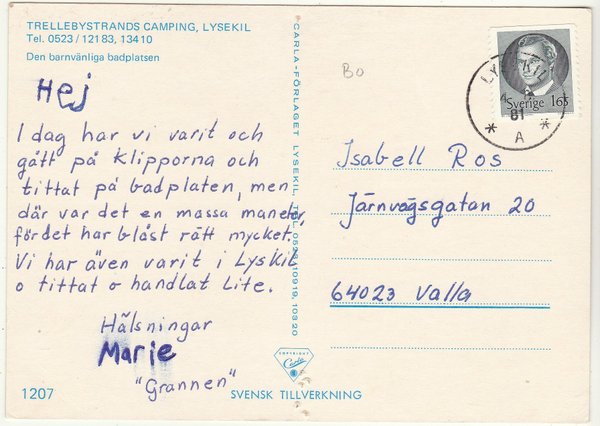 TRELLEBYSTRANDS CAMPING, LYSEKIL
Tel. 0523/12183, 13410
Den barnvänliga badplatsen
Hej
I dag har vi varit och
gått på klipporna och
tittat på badplaten, men
där var det en massa maneter,
för det har blåst rätt mycket.
Vi har även varit i Lyskil
o tittat o handlat Lite.
Hälsningar
Marie
"Grannen"
1207
SVENSK TILLVERKNING
CARLA-FÖRLAGET LYSEKIL TEL. 0523/10919, 10920
COPYRIGHT
Carla
BO
Sverige 165
LYSEKIL
81
* A *
Isabell Ros
Järnvägsgatan 20
64023 Valla